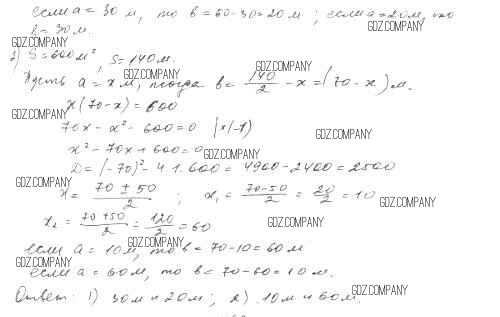 если a = 30 м, то b = 50-30 = 20 м; если a = 20 м, то
b = 30 м.
GDZ.COMPANY
GDZ.COMPANY
2) S = 600 м², S = 140 м.
GDZ.COMPANY
GDZ.COMPANY
Пусть a = x м, тогда b = 140/2 - x = (70 - x) м.
x(70-x) = 600
GDZ.COMPANY
70x - x² - 600 = 0 |×(-1)
GDZ.COMPANY
x² - 70x + 600 = 0
GDZ.COMPANY
D = (-70)² - 4·1·600 = 4900 - 2400 = 2500
GDZ.COMPANY
x = (70 ± 50)/2 ; x₁ = (70-50)/2 = 20/2 = 10
GDZ.COMPANY
x₂ = (70+50)/2 = 120/2 = 60
GDZ.COMPANY
GDZ.COMPANY
если a = 10 м, то b = 70-10 = 60 м
GDZ.COMPANY
если a = 60 м, то b = 70-60 = 10 м.
GDZ.COMPANY
Ответ: 1) 30 м и 20 м; 2) 10 м и 60 м.